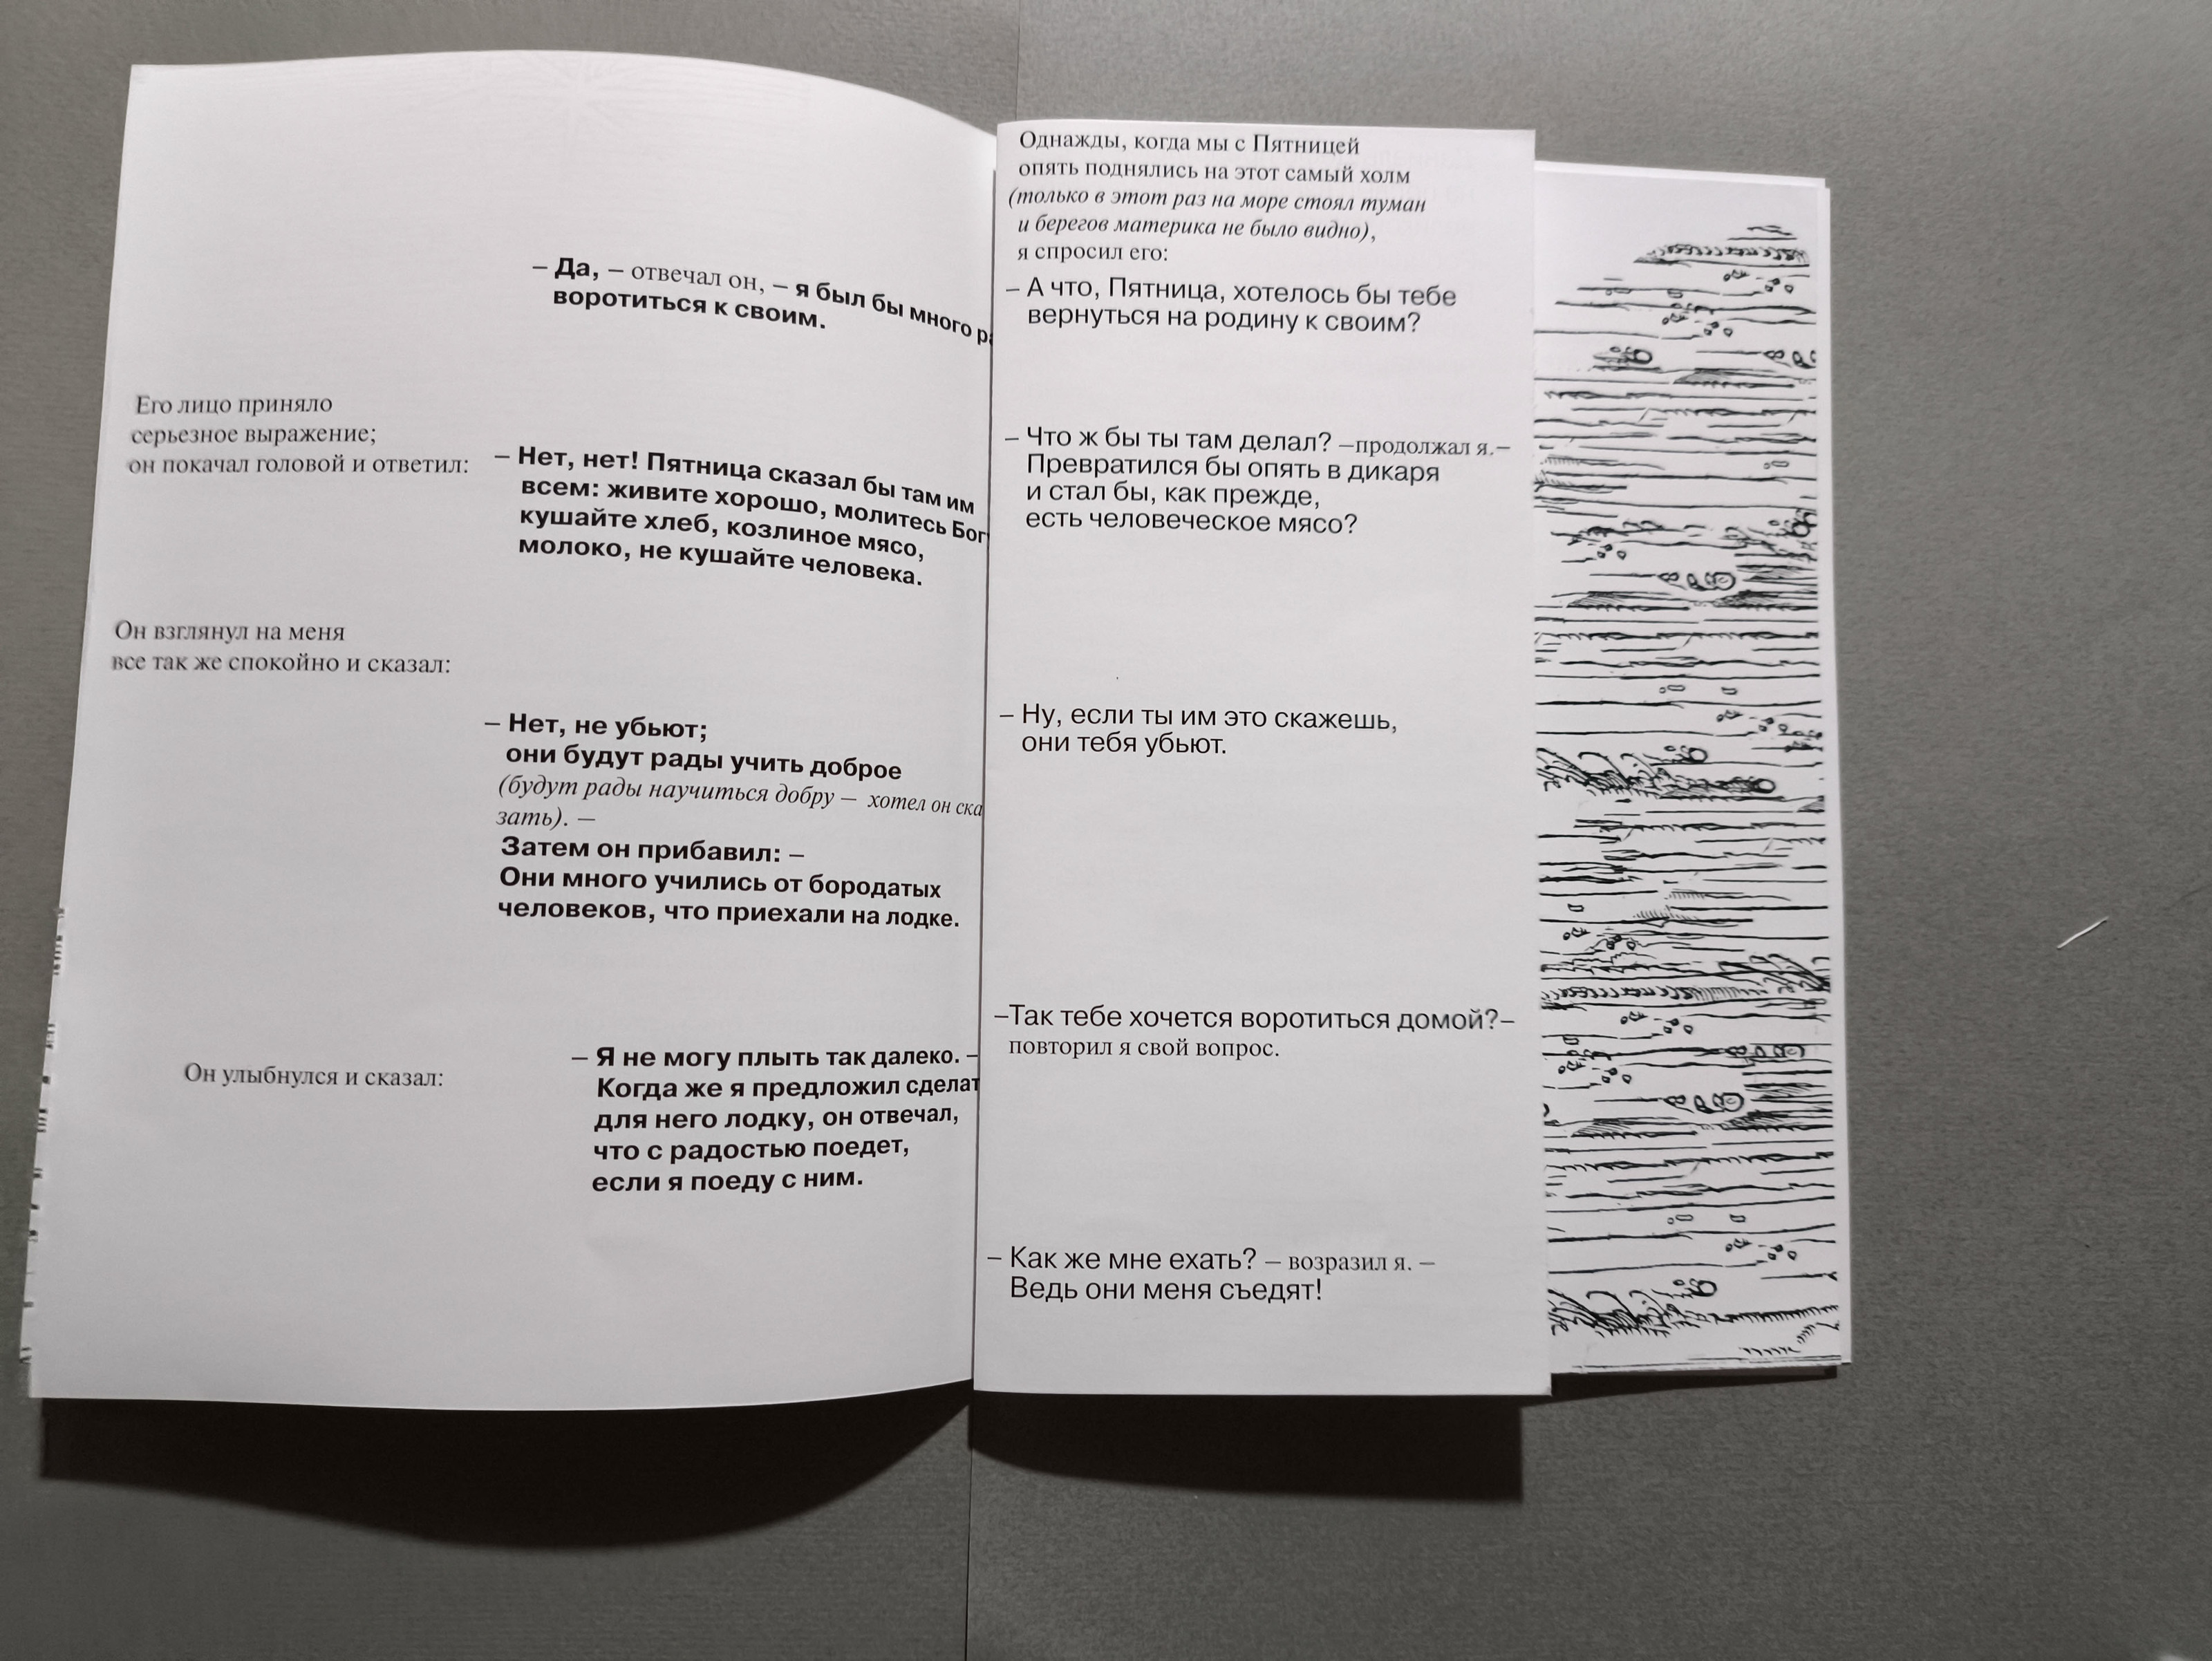 – Да, – отвечал он, – я был бы много
воротиться к своим.
Его лицо приняло
серьезное выражение;
он покачал головой и ответил:
– Нет, нет! Пятница сказал бы там им
всем: живите хорошо, молитесь
кушайте хлеб, козлиное мясо,
молоко, не кушайте человека.
Он взглянул на меня
все так же спокойно и сказал:
– Нет, не убьют;
они будут рады учить доброе
(будут рады научиться добру – хотел он ска
зать). –
Затем он прибавил: –
Они много учились от бородатых
человеков, что приехали на лодке.
Он улыбнулся и сказал:
– Я не могу плыть так далеко. –
Когда же я предложил сделат
для него лодку, он отвечал,
что с радостью поедет,
если я поеду с ним.
Однажды, когда мы с Пятницей
опять поднялись на этот самый холм
(только в этот раз на море стоял туман
и берегов материка не было видно),
я спросил его:
– А что, Пятница, хотелось бы тебе
вернуться на родину к своим?
– Что ж бы ты там делал? –продолжал я.–
Превратился бы опять в дикаря
и стал бы, как прежде,
есть человеческое мясо?
– Ну, если ты им это скажешь,
они тебя убьют.
–Так тебе хочется воротиться домой?–
повторил я свой вопрос.
– Как же мне ехать? – возразил я. –
Ведь они меня съедят!